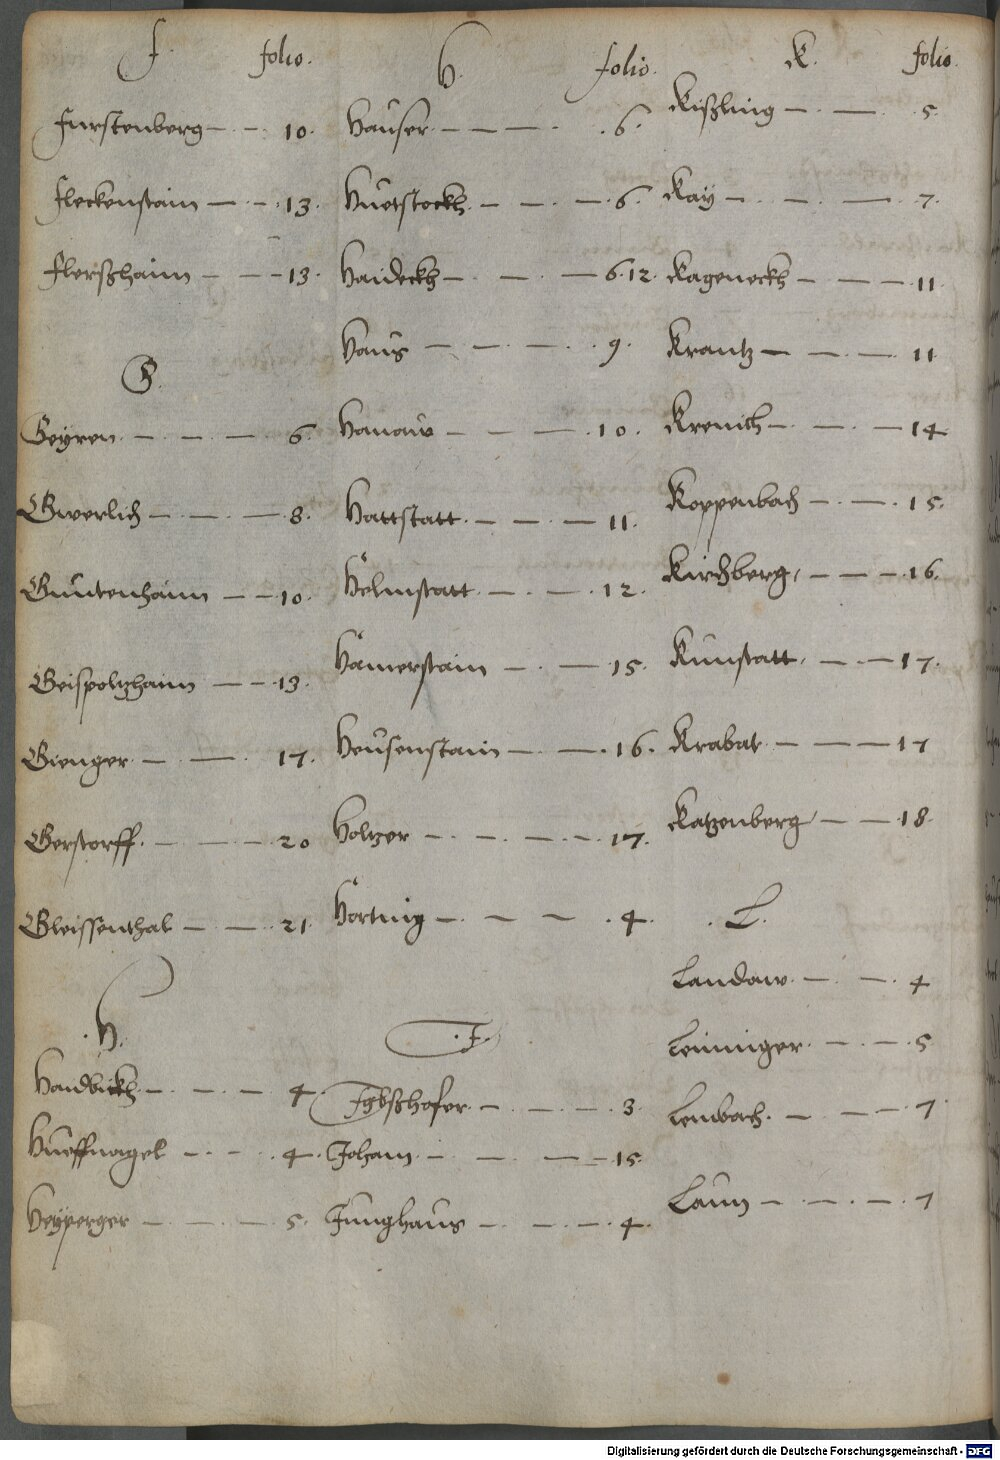 f. folio.
Furstenberg 10.
Fleckenstain 13.
Flerßhaim 13.
G.
Geyren. 6.
Gwerlich 8.
Guttenhaim 10.
Geispoltzhaim 13.
Gienger 17.
Gerstorff. 20
Gleissenthal 21.
.H.
Haidbickh 4.
Hueffnagel 4.
Heyperger 5.
H. folio.
Hauser .6.
Huetstockh. 6.
Haideckh 6.12.
Haus 9.
Hanaw 10.
Hattstatt. 11.
Helmstatt. 12.
Hamerstain 15.
Heusenstain 16.
Holtzer 17.
Hörting 4.
.J.
Igbßhofer 3.
Joham 15.
Junghaus 4.
K. folio.
Kißling 5.
Kay 7.
Kageneckh 11.
Krantz 11.
Kronich 14
Koppenbach 15.
Kirchberg 16.
Kunstatt. 17.
Krabat 17
Katzenberg 18.
.L.
Landaw. 4
Leininger 5
Lenbach. 7
Laun 7
Digitalisierung gefördert durch die Deutsche Forschungsgemeinschaft - DFG